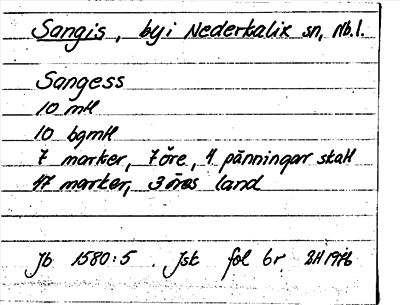 Sangis, by i Nedertalix sn, Nb.l.
Sangess
10 mtl
10 bgmtl
7 marker, 7 öre, 4 pänningar skatt
47 marker, 3 öres land
Jb 1580:5. Jsk fol 6r